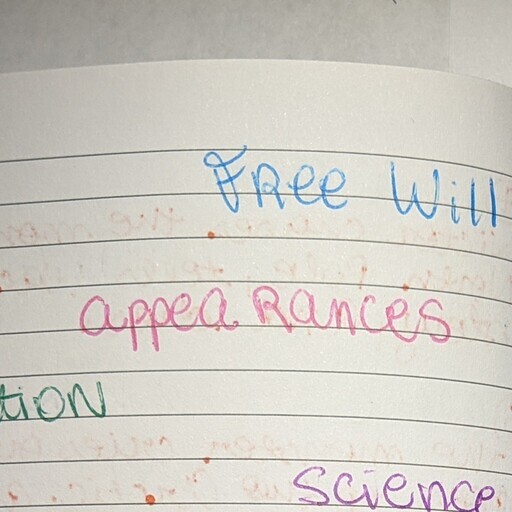 Free Will
appearances
tion
science